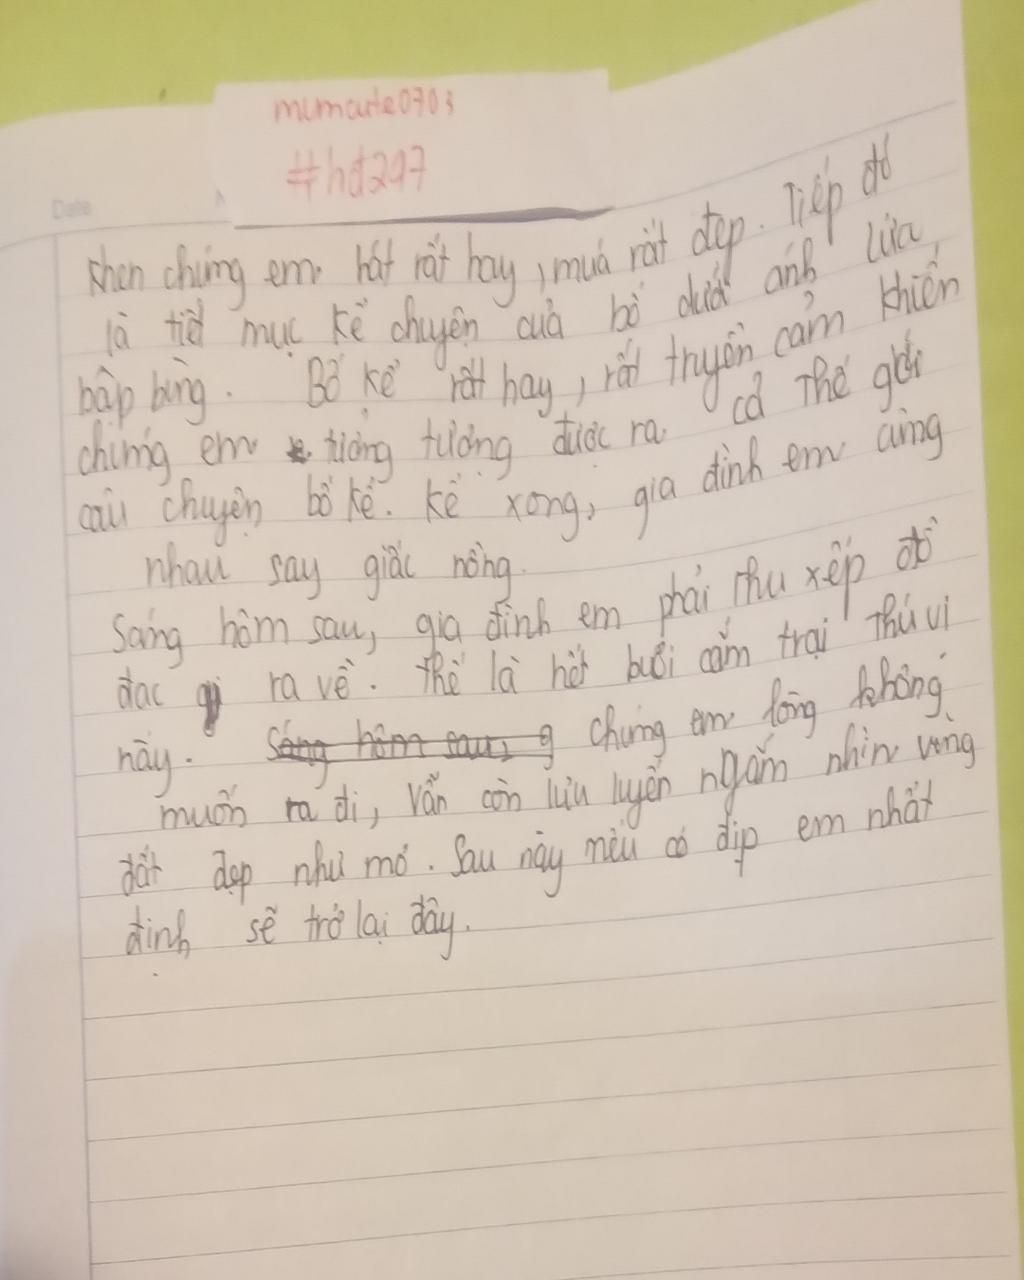 mumcute0703
#hđ297
Date
khen chúng em hát rất hay, múa rất đẹp. Tiếp đó
là tiết mục kể chuyện của bố dưới ánh lửa
bập bùng. Bố kể rất hay, rất truyền cảm khiến
chúng em tưởng tượng được ra cả thế giới
câu chuyện bố kể. kể xong, gia đình em cùng
nhau say giấc nồng.
Sáng hôm sau, gia đình em phải thu xếp đồ
đạc ra về. Thế là hết buổi cắm trại thú vị
này. Sáng hôm sau, g chúng em lòng không
muốn ra đi, vẫn còn lưu luyến ngắm nhìn vùng
đất đẹp như mơ. Sau này nếu có dịp em nhất
định sẽ trở lại đây.